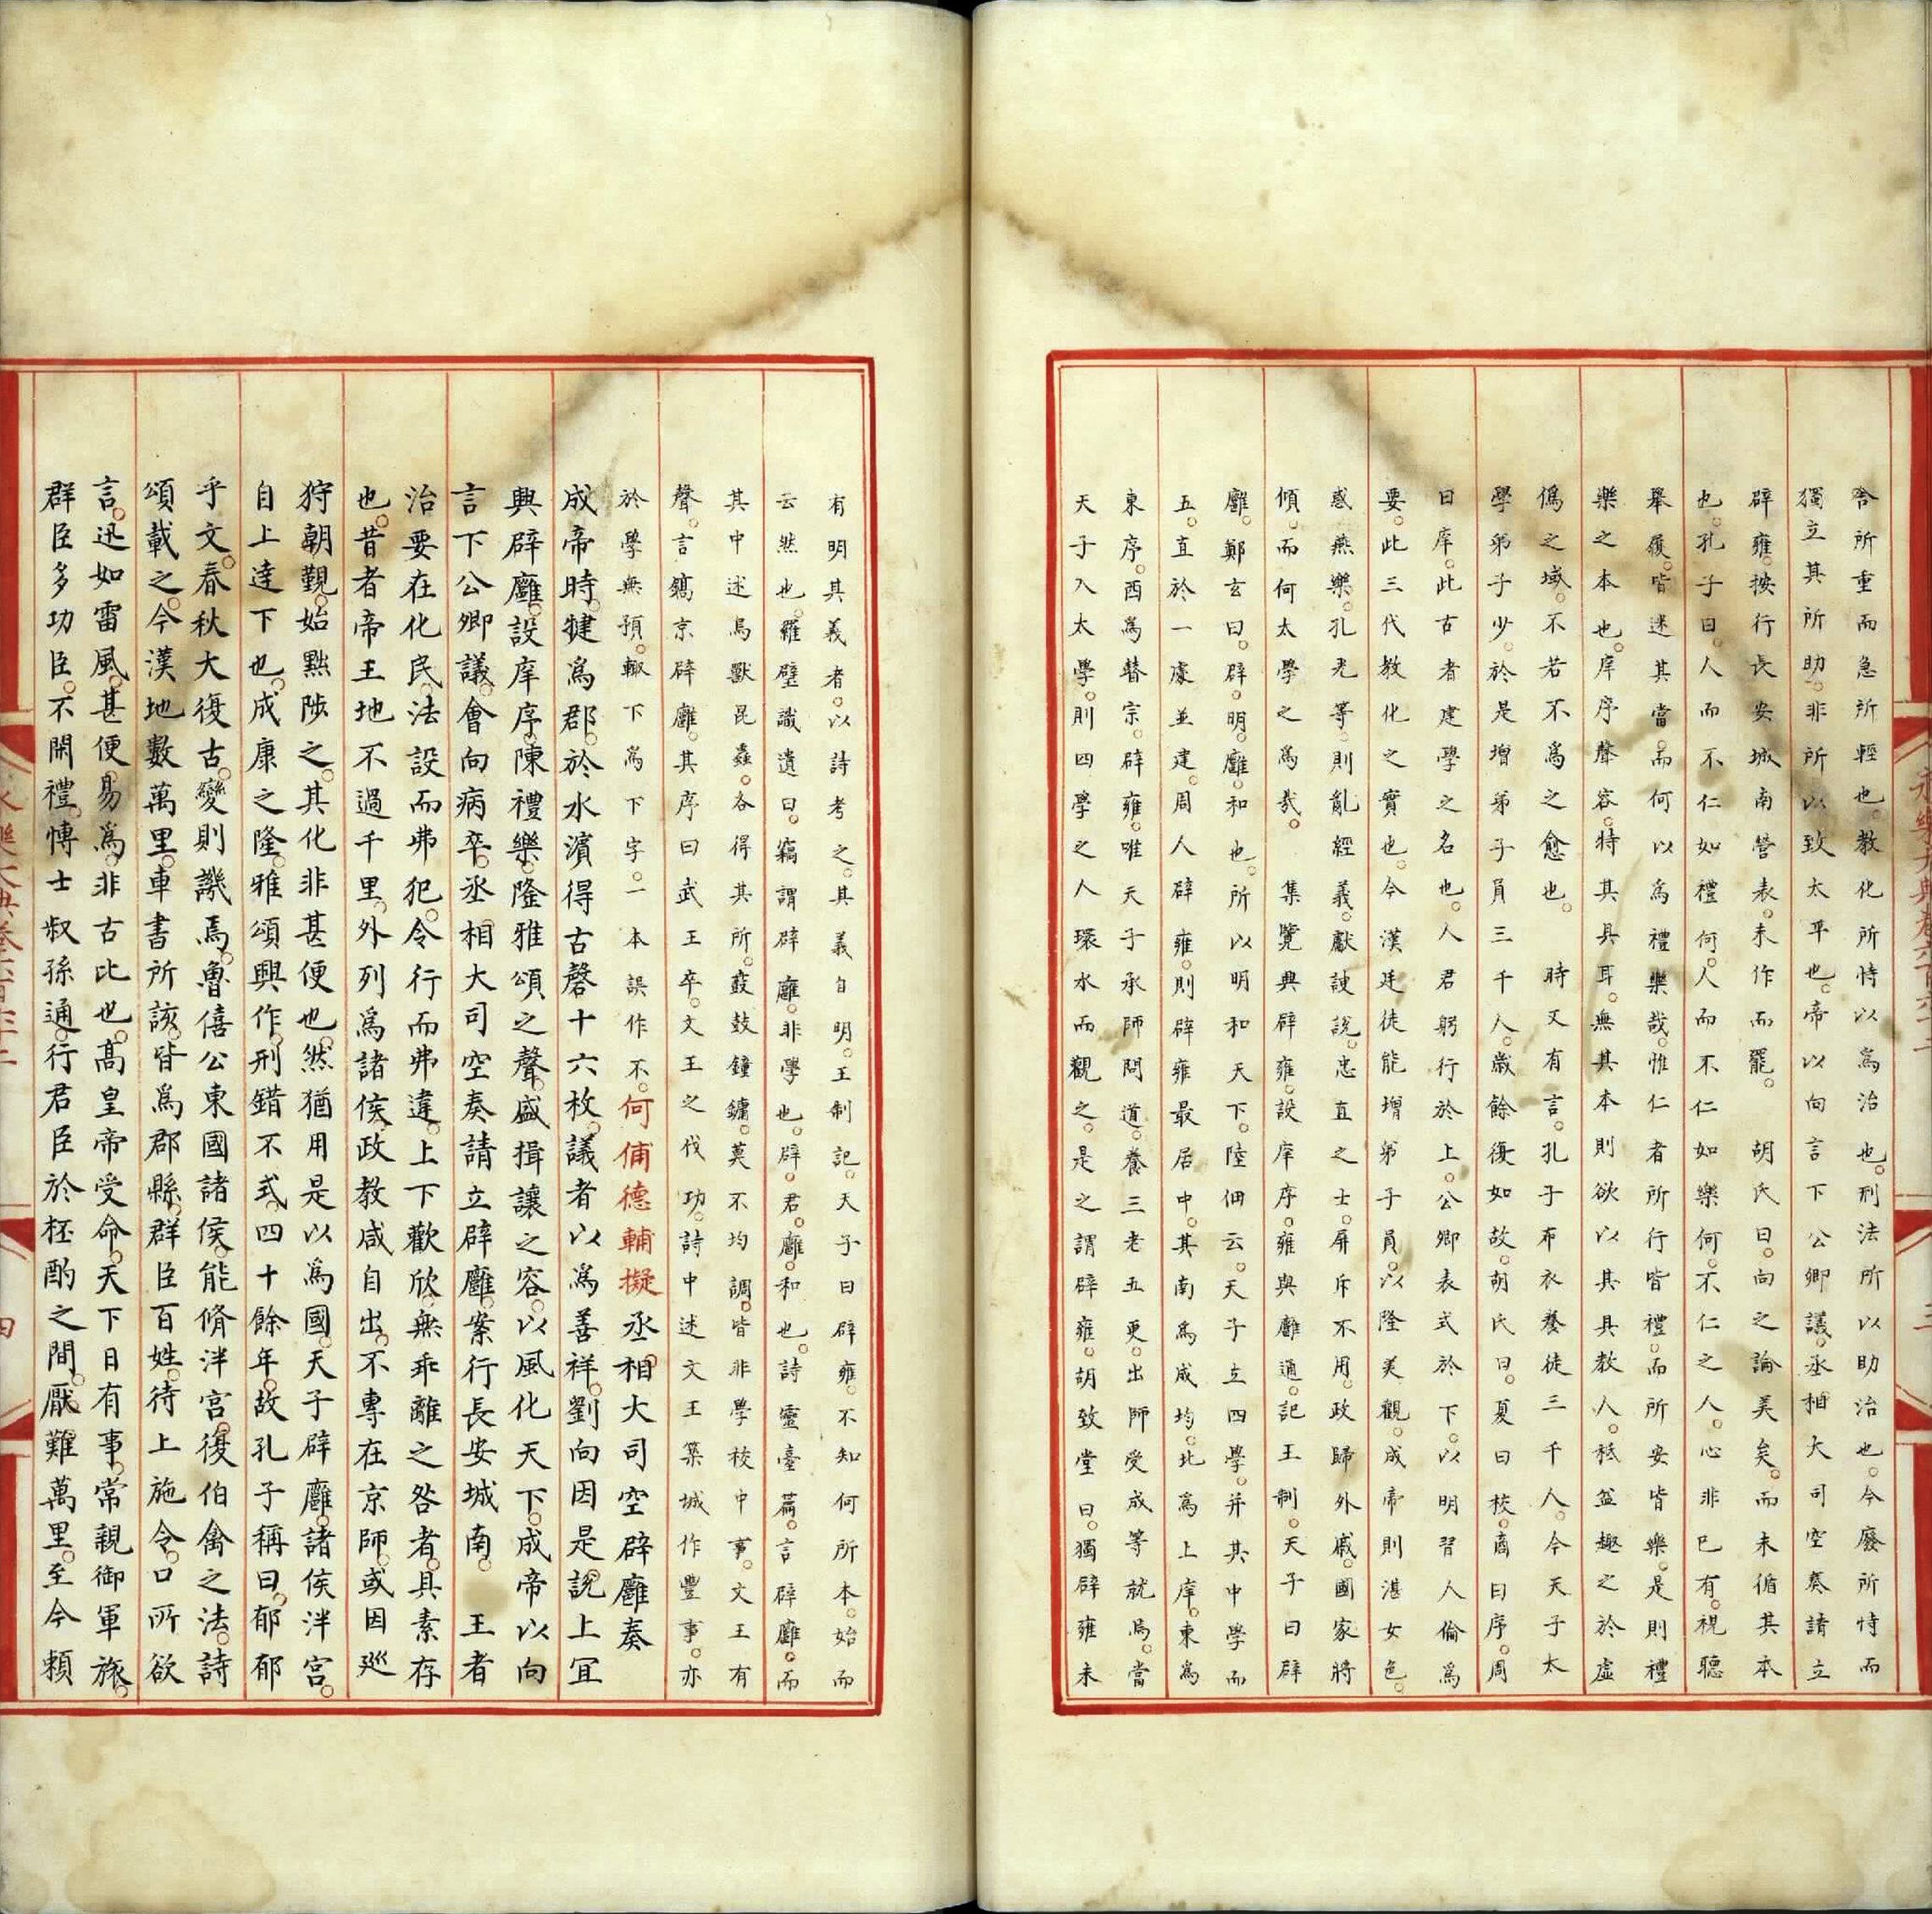 舍所重而急所輕也教化所恃以為治也刑法所以助治也今廢所恃而
獨立其所助非所以致太平也帝以向言下公卿議丞相大司空奏請立
辟雍按行長安城南營表未作而罷胡氏曰向之論美矣而未循其本
也孔子曰人而不仁如禮何人而不仁如樂何不仁之人心非已有視聽
舉履皆迷其當而何以為禮樂哉惟仁者所行皆禮而所安皆樂是則禮
樂之本也庠序聲容特其具耳無其本則欲以其具教人秪益趣之於虛
偽之域不若不為之愈也時又有言孔子布衣養徒三千人今天子太
學弟子少於是增弟子員三千人歲餘復如故胡氏曰夏曰校商曰序周
曰庠此古者建學之名也人君躬行於上公卿表式於下以明習人倫為
要此三代教化之實也今漢廷徒能增弟子員以隆美觀成帝則湛女色
惑燕樂孔光等則亂經義獻諛說忠直之士屏斥不用政歸外戚國家將
傾而何太學之為哉集覽興辟雍設庠序雍與廱通記王制天子曰辟
廱鄭玄曰辟明廱和也所以明和天下陸佃云天子立四學并其中學而
五直於一處並建周人辟雍則辟雍最居中其南為成均北為上庠東為
東序西為瞽宗辟雍唯天子承師問道養三老五更出師受成等就焉當
天子入太學則四學之人環水而觀之是之謂辟雍胡致堂曰獨辟雍未
有明其義者以詩考之其義自明王制記天子曰辟雍不知何所本始而
云然也羅璧識遺曰竊謂辟廱非學也辟君廱和也詩靈臺篇言辟廱而
其中述鳥獸昆蟲各得其所鼓鐘鏞莫不均調皆非學校中事文王有
聲言鎬京辟廱其序曰武王卒文王之伐功詩中述文王築城作豐事亦
於學無預輙下為下字一本誤作不何俌德輔擬丞相大司空辟廱奏
成帝時犍為郡於水濱得古磬十六枚議者以為善祥劉向因是說上宜
興辟廱設庠序陳禮樂隆雅頌之聲盛揖讓之容以風化天下成帝以向
言下公卿議會向病卒丞相大司空奏請立辟廱案行長安城南王者
治要在化民法設而弗犯令行而弗違上下歡欣無乖離之咎者具素存
也昔者帝王地不過千里外列為諸侯政教咸自出不專在京師或因巡
狩朝覲始黜陟之其化非甚便也然猶用是以為國天子辟廱諸侯泮宮
自上達下也成康之隆雅頌興作刑錯不式四十餘年故孔子稱曰郁郁
乎文春秋大復古變則譏焉魯僖公東國諸侯能脩泮宮復伯禽之法詩
頌載之今漢地數萬里車書所該皆為郡縣群臣百姓待上施令口所欲
言迅如雷風甚便易為非古比也高皇帝受命天下日有事常親御軍旅
群臣多功臣不閑禮博士叔孫通行君臣於柸酌之間厭難萬里至今賴